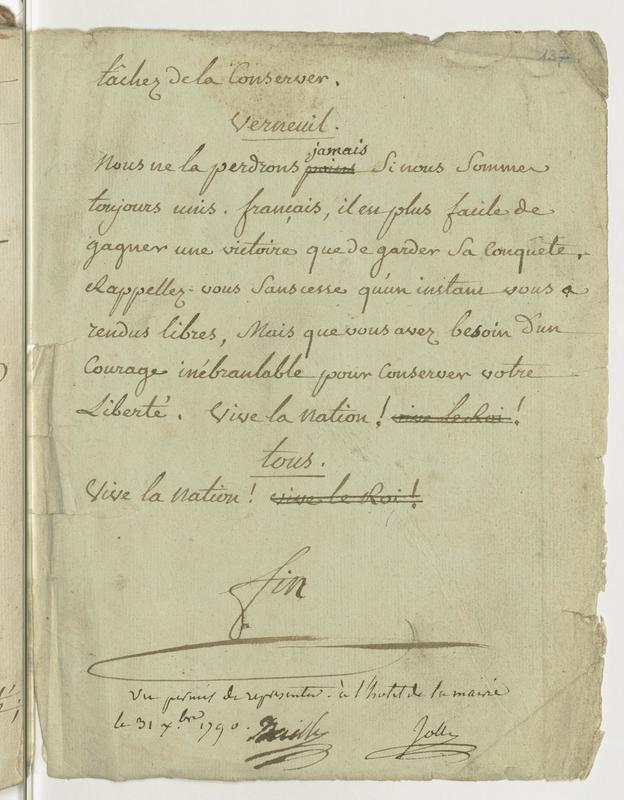 137
tâchez de la Conserver.
Verneuil.
jamais
Nous ne la perdrons point Si nous Sommes
toujours unis. français, il en plus facile de
gagner une victoire que de garder Sa Conquête.
Rappellez-vous Sans cesse qu'un instant vous a
rendus libres, Mais que vous avez besoin d'un
Courage inébranlable pour Conserver votre
Liberté. Vive la Nation! vive le Roi!
tous.
Vive la Nation! vive le Roi!
fin
vu permis de representer. à l'hotel de la mairie
le 31 xbre 1790.
Jolly